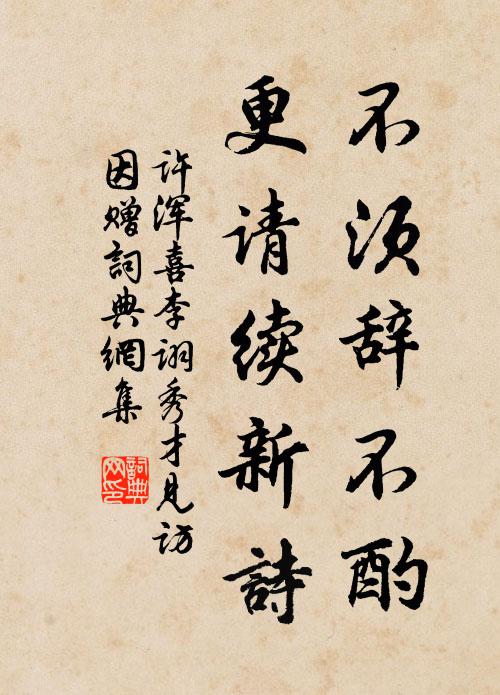 不须辞不酌
更请续新詩
许浑喜李诩秀才見访
因赠詞典網集
詞典
网印